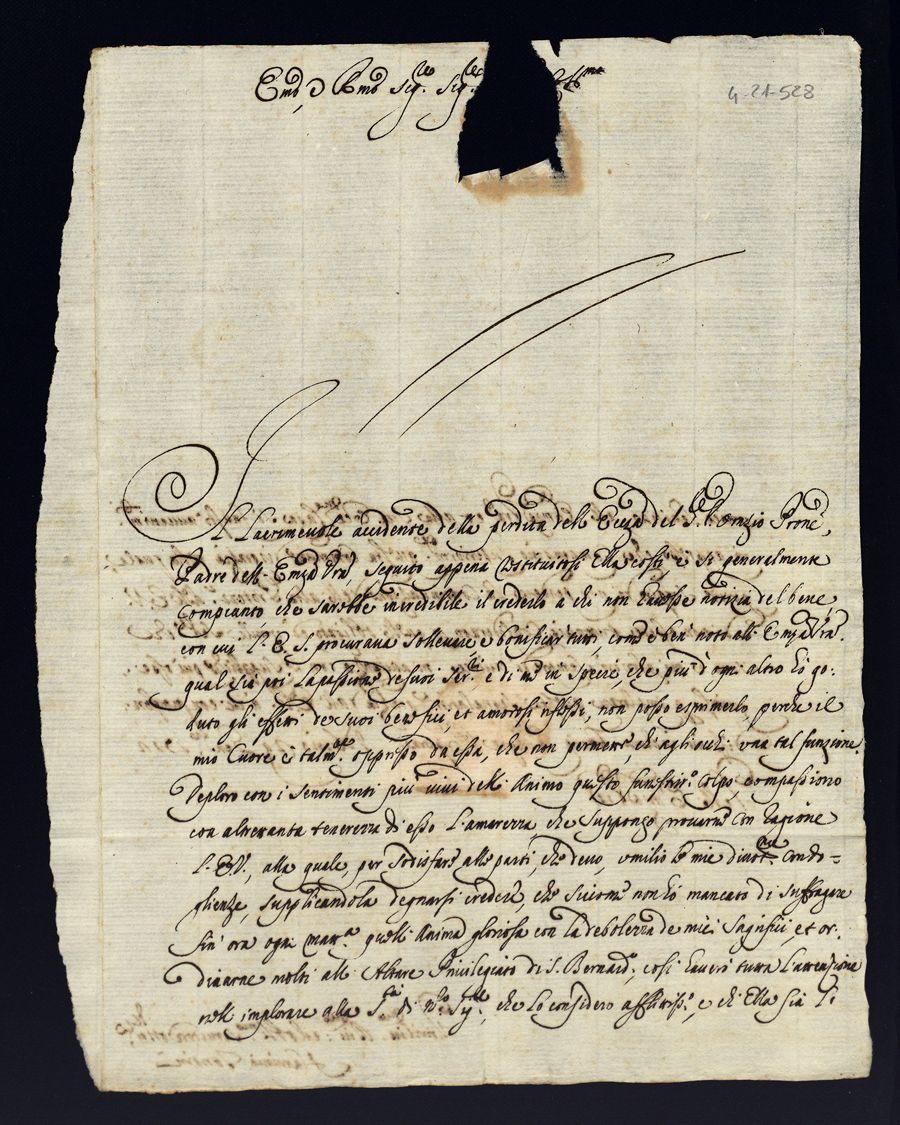 Em.o e Rmo Sig.re Sig.re
4-21-528
Il Lacrimevole accidente della perdita dell' Ecc.za del S.r D. Orazio Prone,
Padre dell' Em.za Vra, seguito appena restituitosi Ella costì, è sì generalmente
Compianto, che sarebbe incredibile il crederlo a chi non havesse notizia del bene,
con cui l'E. S. procurava sollevare, e bonificar tutti, com'è ben noto all' Em.za Vra.
qual sia poi la passione de suoi Ser.ri e di me in specie, che più d'ogni altro hò go:
duto gli effetti de suoi benefici, et amorosi riflessi, non posso esprimerlo, perche il
mio Cuore è talm.te oppresso da essa, che non permette, che agli occhi una tal funzione.
Deploro con i sentimenti più vivi dell' Animo questo funestiss.o Colpo, e compassiono
con altretanta tenerezza di esso l'amarezza, che suppongo provarne con ragione
l'E.V., alla quale, per sodisfare alle parti, che devo, umilio le mie divot.me condo=
glienze, supplicandola degnarsi credere, che siccome non hò mancato di suffragare
sin' ora ogni matt.a quell' Anima gloriosa con la debolezza de miei Sagrifici, et or:
dinarne molti all' Altare Privilegiato di S. Bernardo, così haverò tutta l'attenzione
nell' implorare alla S.tà di N.ro Sig.re, che lo considero afflittiss.o, e che Ella sia li